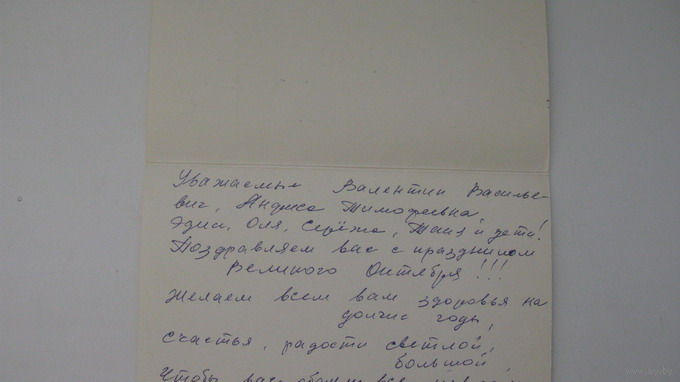 Уважаемые Валентин Василье-
вич, Анфиса Тимофеевна,
Эдик, Оля, Серёжа, Таня и дети!
Поздравляем вас с праздником
Великого Октября!!!
Желаем всем вам здоровья на
долгие годы,
Счастья, радости светлой,
большой,
Чтобы вас